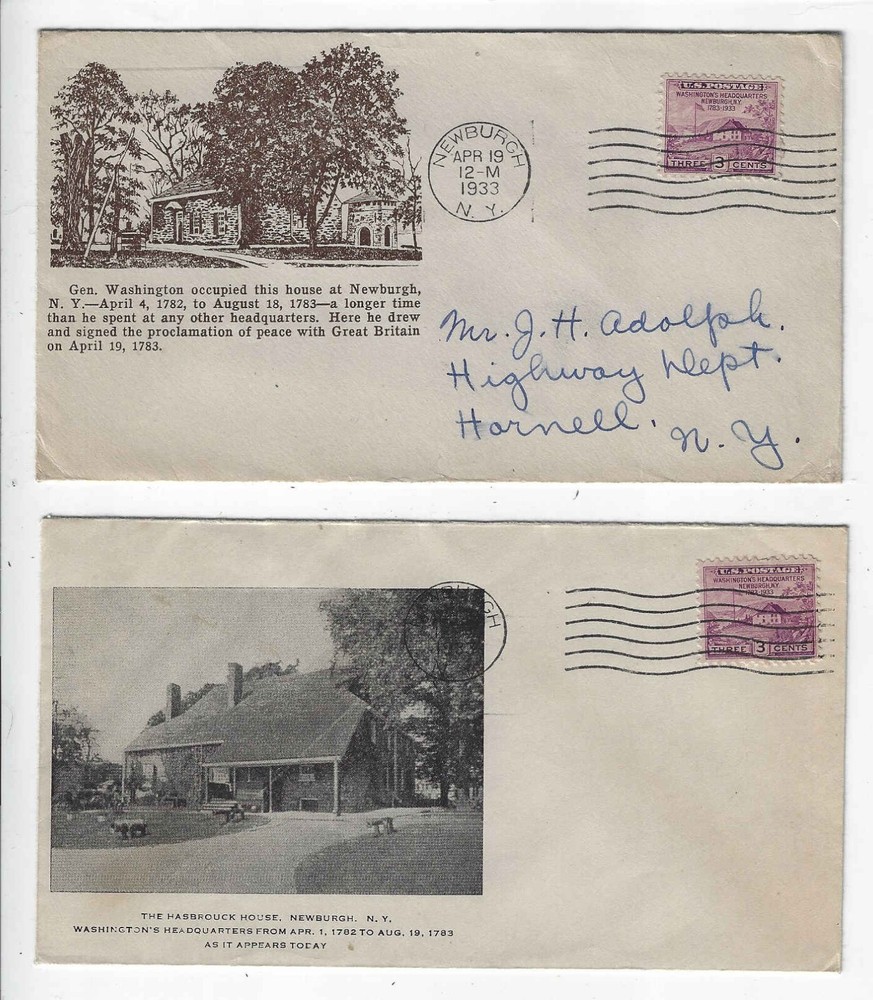 U.S. POSTAGE
WASHINGTON'S HEADQUARTERS
NEWBURGH, N.Y.
1783-1933
THREE 3 CENTS
NEWBURGH
APR 19
12-M
1933
N. Y.
Gen. Washington occupied this house at Newburgh,
N. Y.—April 4, 1782, to August 18, 1783—a longer time
than he spent at any other headquarters. Here he drew
and signed the proclamation of peace with Great Britain
on April 19, 1783.
Mr. J. H. Adolph.
Highway Dept.
Hornell. N. Y.
U.S. POSTAGE
WASHINGTON'S HEADQUARTERS
NEWBURGH, N.Y.
1783-1933
THREE 3 CENTS
THE HASBROUCK HOUSE, NEWBURGH. N. Y.
WASHINGTON'S HEADQUARTERS FROM APR. 1, 1782 TO AUG. 19, 1783
AS IT APPEARS TODAY